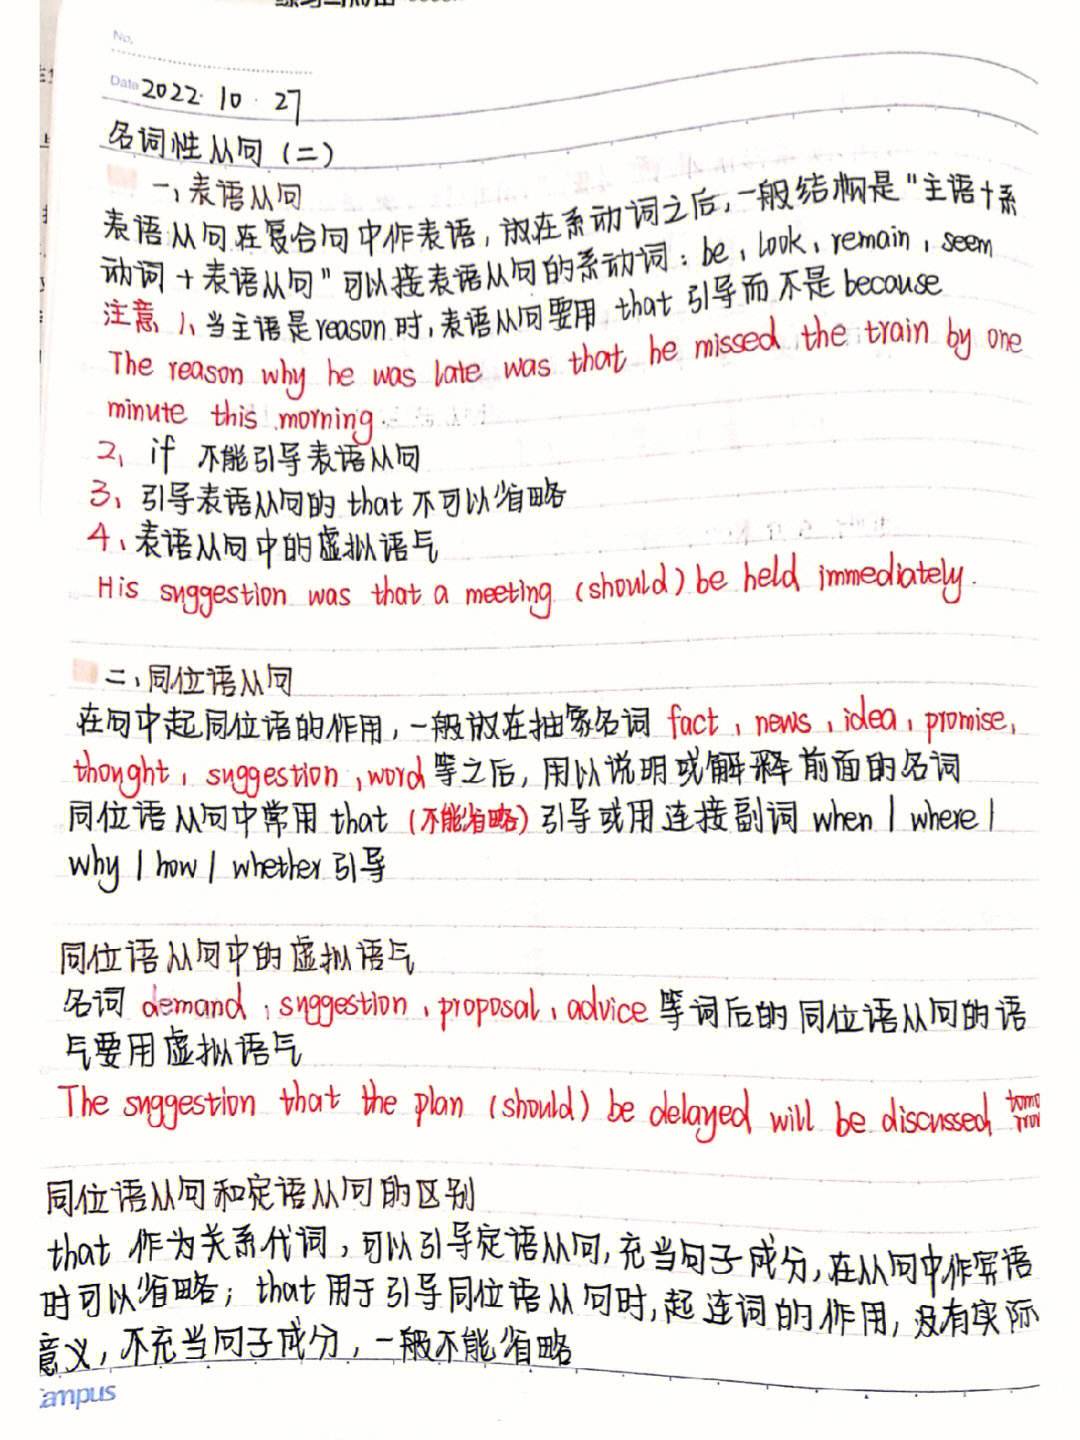 No.
Date 2022.10.27
名词性从句(二)
一、表语从句
表语从句在复合句中作表语,放在系动词之后,一般结构是"主语+系
动词+表语从句"可以接表语从句的系动词:be、look、remain、seem
注意 1、当主语是reason时,表语从句要用 that 引导而不是because
The reason why he was late was that he missed the train by one
minute this morning.
2、if 不能引导表语从句
3、引导表语从句的 that 不可以省略
4、表语从句中的虚拟语气
His suggestion was that a meeting (should) be held immediately.
二、同位语从句
在句中起同位语的作用,一般放在抽象名词 fact、news、idea、promise、
thought、suggestion、word等之后,用以说明或解释前面的名词
同位语从句中常用 that (不能省略)引导或用连接副词 when / where /
why / how / whether 引导
同位语从句中的虚拟语气
名词 demand、suggestion、proposal、advice 等词后的同位语从句的语
气要用虚拟语气
The suggestion that the plan (should) be delayed will be discussed
同位语从句和定语从句的区别
that 作为关系代词,可以引导定语从句,充当句子成分,在从句中作宾语
时可以省略;that 用于引导同位语从句时,起连词的作用,没有实际
意义,不充当句子成分,一般不能省略
Campus